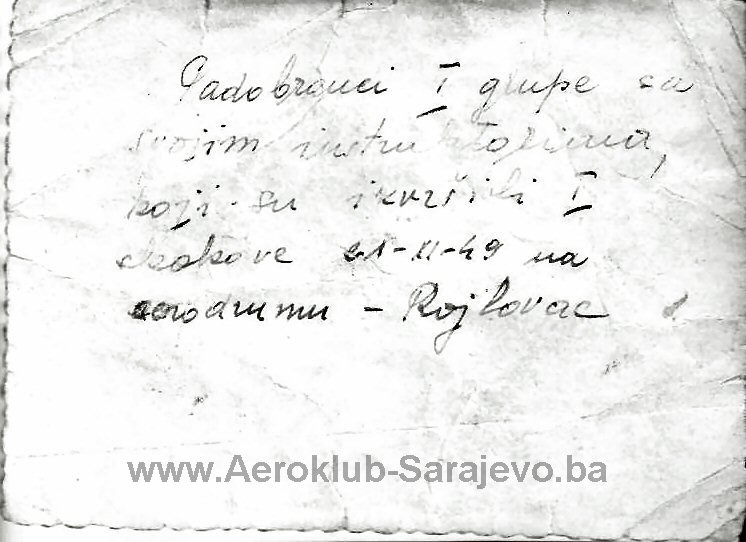 Padobranci I grupe sa
svojim instruktorima,
koji su izvršili I
skokove 21-XI-49 na
aerodrumu - Rajlovac
www.Aeroklub-Sarajevo.ba